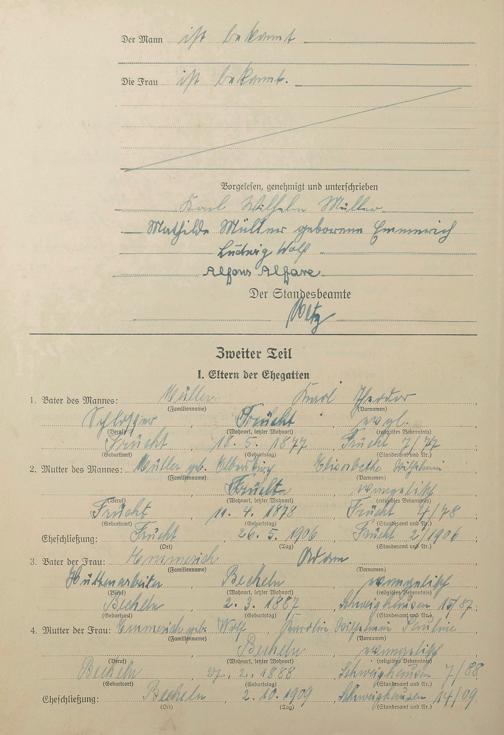 Der Mann ist bekannt
Die Frau ist bekannt.
Vorgelesen, genehmigt und unterschrieben
Karl Wilhelm Müller
Mathilde Müller geborene Emmerich
Ludwig Wolf
Alfons Alfare
Der Standesbeamte
Zweiter Teil
I. Eltern der Ehegatten
1. Vater des Mannes: Müller Karl Theodor
(Familienname) (Vornamen)
Schlosser, Frucht, evgl.
(Beruf) (Wohnort, letzter Wohnort) (religiöses Bekenntnis)
Frucht, 18. 5. 1877, Frucht 7/77
(Geburtsort) (Geburtstag) (Standesamt und Nr.)
2. Mutter des Mannes: Müller geb. Elisabethe Wilhelmine
(Familienname) (Vornamen)
Frucht, evangelisch
(Beruf) (Wohnort, letzter Wohnort) (religiöses Bekenntnis)
Frucht, 11. 4. 1878, Frucht 4/78
(Geburtsort) (Geburtstag) (Standesamt und Nr.)
Eheschließung: Frucht, 26. 5. 1906, Frucht 2/1906
(Ort) (Tag) (Standesamt und Nr.)
3. Vater der Frau: Emmerich Adam
(Familienname) (Vornamen)
Hüttenarbeiter, Becheln, evangelisch
(Beruf) (Wohnort, letzter Wohnort) (religiöses Bekenntnis)
Becheln, 2. 3. 1887, Schweighausen 15/87
(Geburtsort) (Geburtstag) (Standesamt und Nr.)
4. Mutter der Frau: Emmerich geb. Wolf Karoline Wilhelmine Pauline
(Familienname) (Vornamen)
Becheln, evangelisch
(Beruf) (Wohnort, letzter Wohnort) (religiöses Bekenntnis)
Becheln, 27. 2. 1888, Schweighausen 7/88
(Geburtsort) (Geburtstag) (Standesamt und Nr.)
Eheschließung: Becheln, 2. 10. 1909, Schweighausen 14/09
(Ort) (Tag) (Standesamt und Nr.)